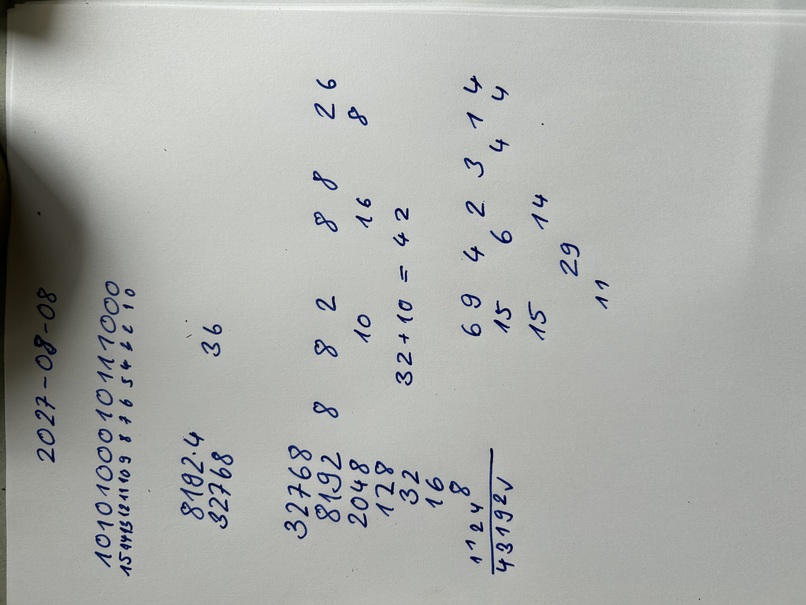 2027-08-08
1010100010111000
15 14 13 12 11 10 9 8 7 6 5 4 6 2 1 0
8192·4
32768 36
32768
8192 8 8 2 8 8 2 6
2048 10 16 8
128
32 32+10 = 42
16
8
1 1 2 4 6 9 4 2 3 1 4
43192√ 15 6 4 4
15 14
29
11